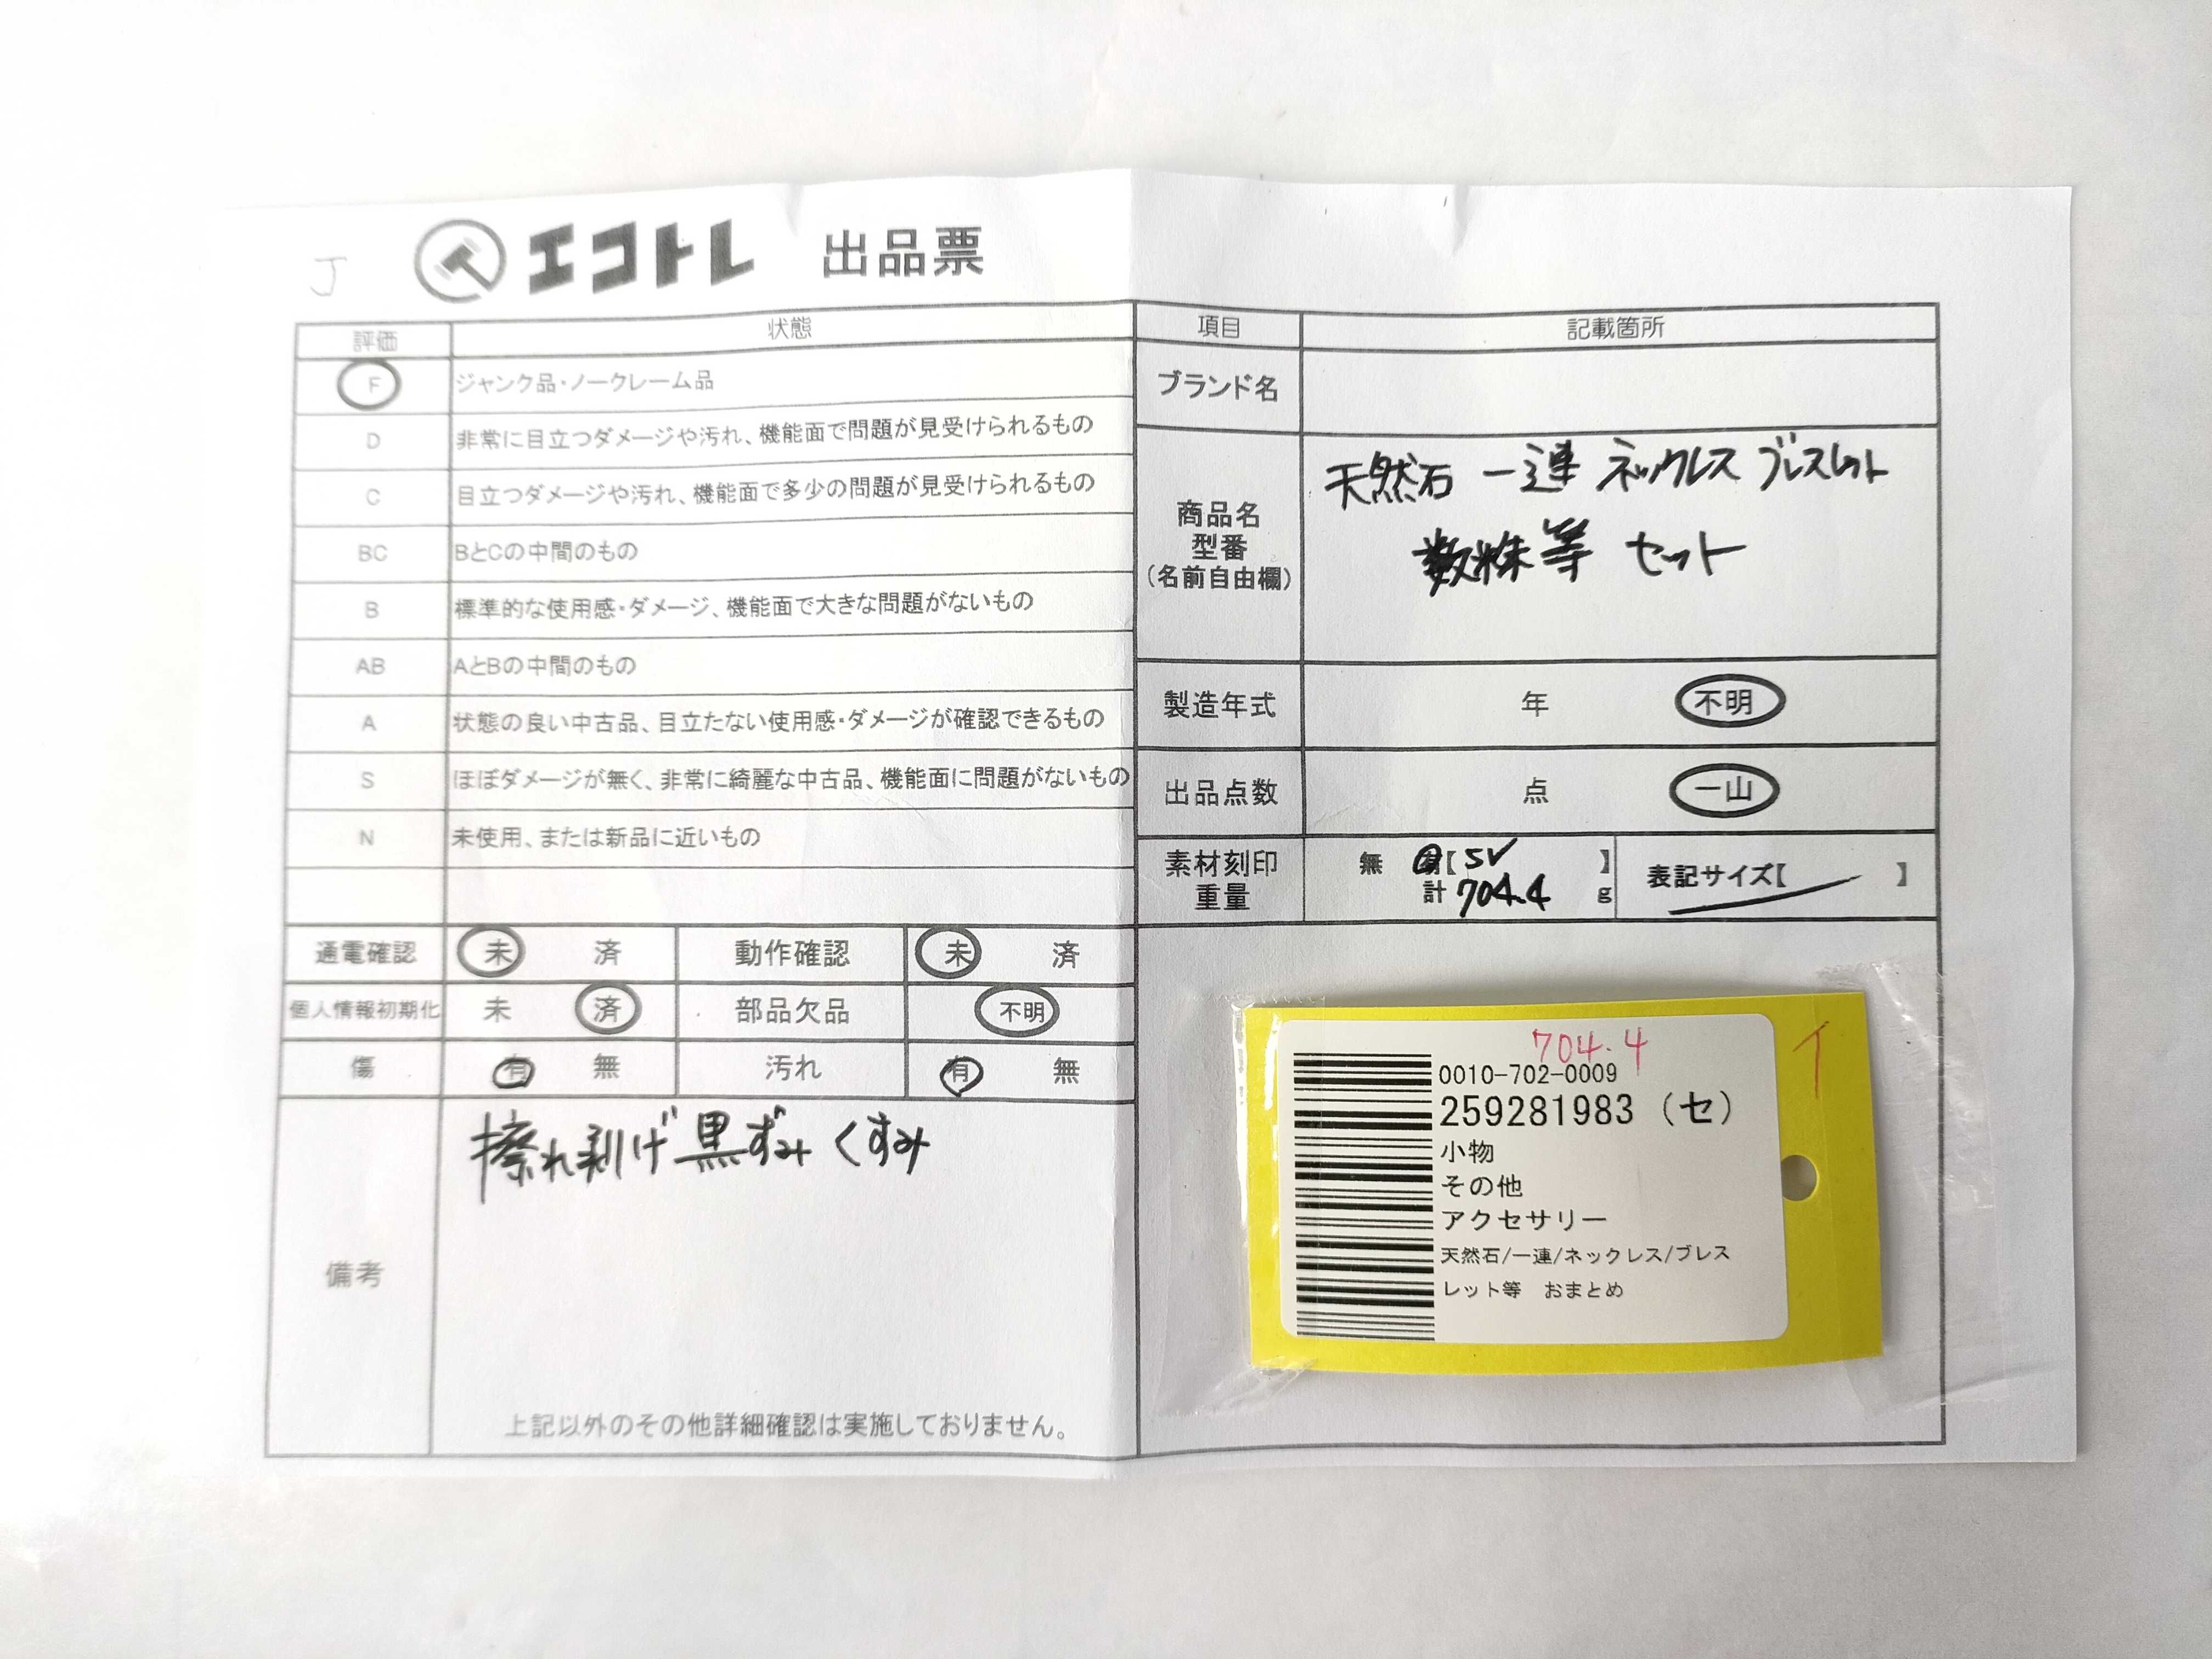 J
エコトレ 出品票
評価 状態
F ジャンク品・ノークレーム品
D 非常に目立つダメージや汚れ、機能面で問題が見受けられるもの
C 目立つダメージや汚れ、機能面で多少の問題が見受けられるもの
BC BとCの中間のもの
B 標準的な使用感・ダメージ、機能面で大きな問題がないもの
AB AとBの中間のもの
A 状態の良い中古品、目立たない使用感・ダメージが確認できるもの
S ほぼダメージが無く、非常に綺麗な中古品、機能面に問題がないもの
N 未使用、または新品に近いもの
通電確認 未 済 動作確認 未 済
個人情報初期化 未 済 部品欠品 不明
傷 有 無 汚れ 有 無
備考
擦れ剥げ 黒ずみ くすみ
上記以外のその他詳細確認は実施しておりません。
項目 記載箇所
ブランド名
商品名
型番
(名前自由欄)
天然石 一連 ネックレス ブレスレット
数珠等 セット
製造年式 年 不明
出品点数 点 一山
素材刻印
重量
無 有【 SV 】
計 704.4 g
表記サイズ【 】
704.4
イ
0010-702-0009
259281983 (セ)
小物
その他
アクセサリー
天然石/一連/ネックレス/ブレス
レット等 おまとめ